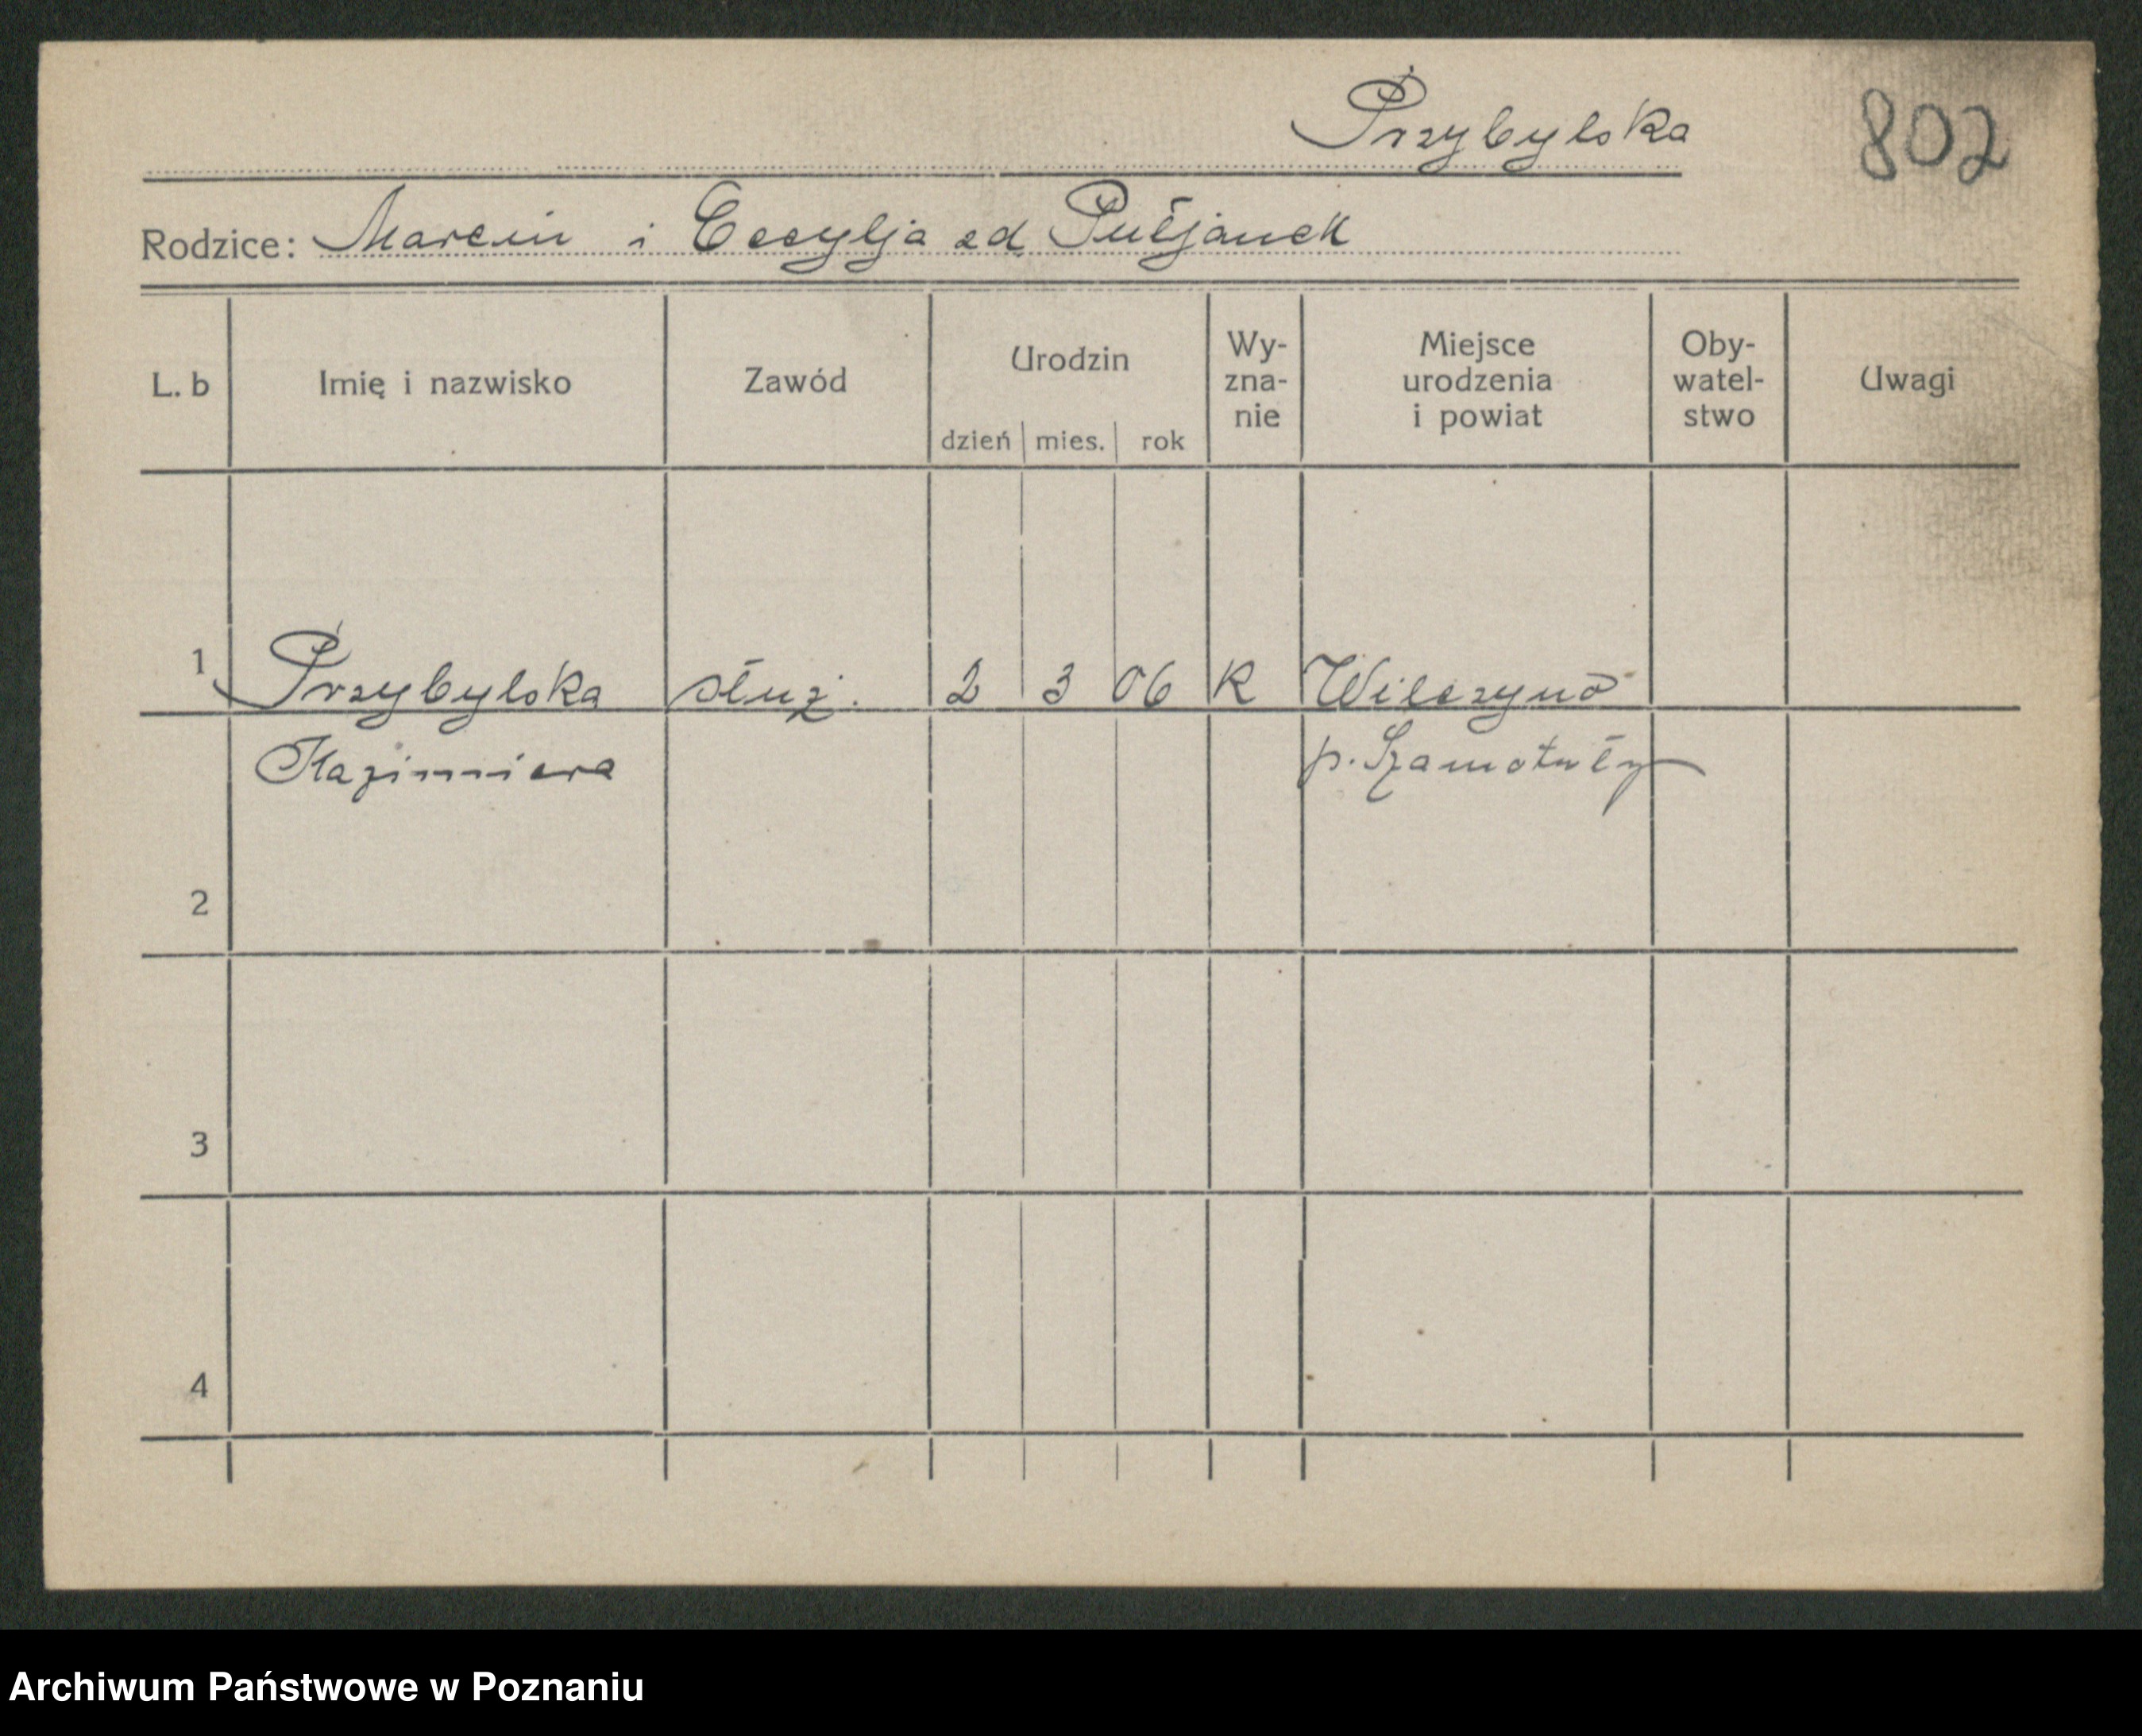 Przybylska
802
Rodzice: Marcin i Cecylja zd
L. b Imię i nazwisko Zawód Urodzin dzień mies. rok Wy-zna-nie Miejsce urodzenia i powiat Oby-watel-stwo Uwagi
1 Przybylska służ. 2 3 06 K Wilczyno
Kazimiera p. Szamotuły
2
3
4
Archiwum Państwowe w Poznaniu